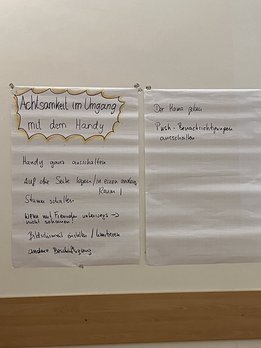 Achtsamkeit im Umgang
mit dem Handy
Handy ganz ausschalten
Auf die Seite legen / in einen anderen
Raum
Stumm schalten
Wenn mit Freunden unterwegs →
nicht schauen!
Bildschirmzeit einstellen / limitieren
andere Beschäftigung
Der Mama geben
Push-Benachrichtigungen
ausschalten